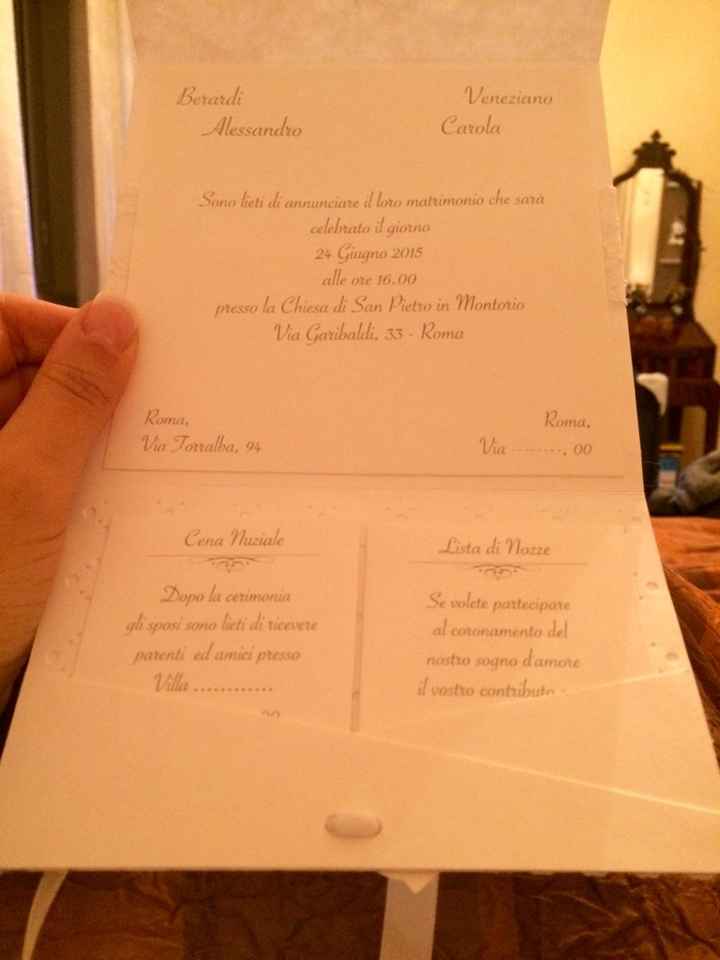 Berardi
Alessandro
Veneziano
Carola
Sono lieti di annunciare il loro matrimonio che sarà
celebrato il giorno
24 Giugno 2015
alle ore 16.00
presso la Chiesa di San Pietro in Montorio
Via Garibaldi, 33 - Roma
Roma,
Via Torralba, 94
Roma,
Via --------, 00
Cena Nuziale
Dopo la cerimonia
gli sposi sono lieti di ricevere
parenti ed amici presso
Villa ............
Lista di Nozze
Se volete partecipare
al coronamento del
nostro sogno d'amore
il vostro contributo